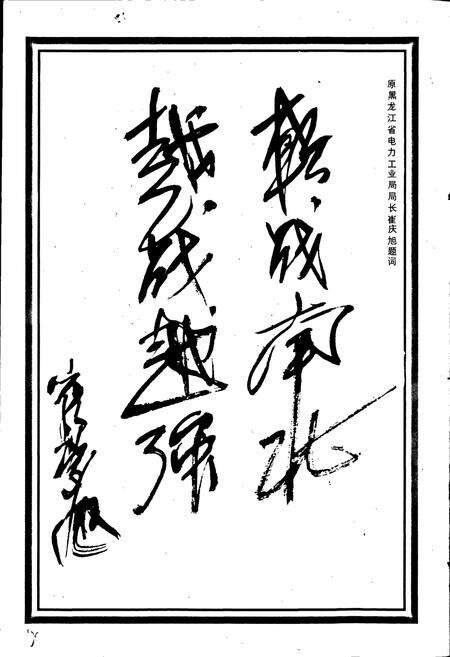 原黑龙江省电力工业局局长崔庆旭题词
转战南北
越战越强
崔庆旭